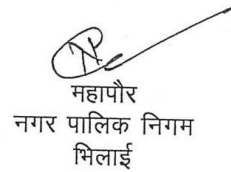 महापौर
नगर पालिक निगम
भिलाई